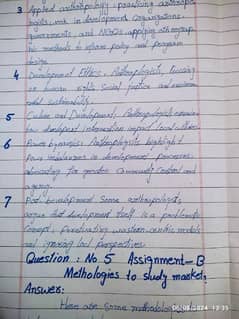 3 Applied anthropology: practicing anthropo-
logists work in development organizations,
governments, and NGOs applying ethnograp-
hic methods to inform policy and program
design.
4 Development Ethics, Anthropologists, focusing
on human rights Social justice and environ-
mental sustainability.
5 Culture and Development, Anthropologists examine
how development intervention impact local cultures
6 Power dynamics: Anthropologists highlight
Power imbalances in development processes,
advocating for greater Community Control and
agency.
7 Post development Some anthropologists,
argue that development itself is a problematic
Concept, perpetuating western-centric models
and ignoring local perspectives.
Question: No 5 Assignment-B
Methologies to study markets
Answer:
Here are Some methodologies
06/08/2024 12:35